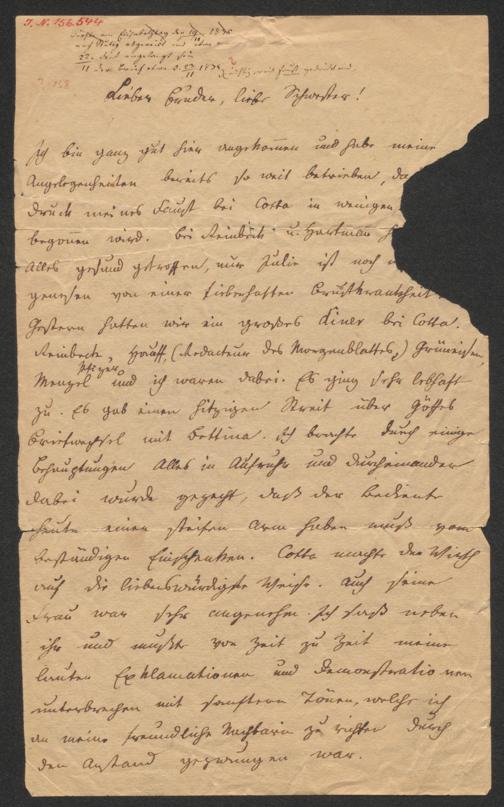 J. N. 156.544
Lieber Bruder, liebe Schwester!
Ich bin ganz gut hier angekommen und habe meine
Angelegenheiten bereits so weit betrieben, da
Druck meines Faust bei Cotta in wenigen
begonnen wird. Bei Reinbeck u. Hartmann h
Alles gesund getroffen, nur Julie ist noch n
genesen von einer fieberhaften Brustkrankheit.
Gestern hatten wir ein großes Diner bei Cotta.
Reinbeck, Hauff, (Redacteur des Morgenblattes,) Grüneisen,
Menzel und ich waren dabei. Es ging sehr lebhaft
zu. Es gab einen hitzigen Streit über Göthes
Briefwechsel mit Bettina. Ich brachte durch einige
Behauptungen Alles in Aufruhr und durcheinander
dabei wurde gezecht, daß der Bediente
heute einen steifen Arm haben muß vom
beständigen Einschenken. Cotta machte den Wirth
auf die liebenswürdigste Weise. Auch seine
Frau war sehr angenehm. Ich saß neben
ihr und mußte von Zeit zu Zeit meine
lauten Exklamationen und Demonstrationen
unterbrechen mit sanftern Tönen, welche ich
an meine freundliche Nachbarin zu richten durch
den Anstand gezwungen war.